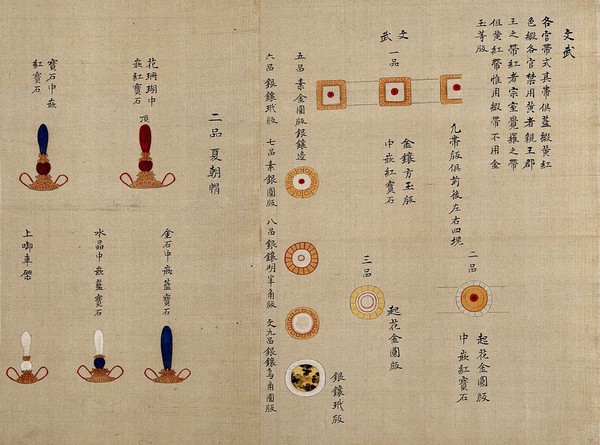 文武
各官帶式其帶俱藍緞黃紅
色緞各官禁用黃者親王郡
王之帶紅者宗室覺羅之帶
但黃紅帶惟用緞帶不用金
玉等版
凡帶版俱前後左右四塊
二品
起花金圓版
中嵌紅寶石
文武
一品
金鑲方玉版
中嵌紅寶石
三品
起花金圓版
銀鑲玳版
五品 素金圓版銀鑲邊
六品 銀鑲玳版 七品 素銀圓版 八品 銀鑲明羊角版 文九品銀鑲烏角圓版
二品夏朝帽
頂
花珊瑚中
嵌紅寶石
寶石中嵌
紅寶石
金石中嵌藍寶石
水晶中嵌藍寶石
上啣車